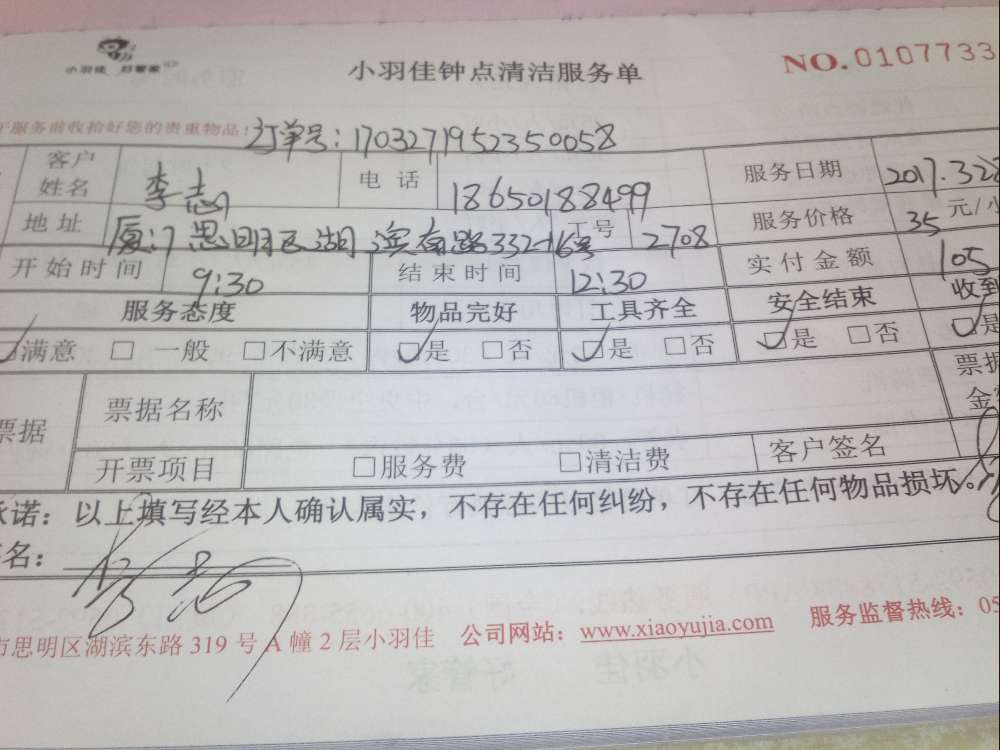 小羽佳 好管家
小羽佳钟点清洁服务单
NO.0107733
服务前收拾好您的贵重物品!
订单号:1703271952350058
客户姓名 李志 电话 18650188499 服务日期 2017.3.28
地址 厦门思明区湖滨南路332-16号 工号 2708 服务价格 35 元/小
开始时间 9:30 结束时间 12:30 实付金额 105
服务态度 物品完好 工具齐全 安全结束 收到
☑满意 □一般 □不满意 ☑是 □否 ☑是 □否 ☑是 □否 ☑是
票据 票据名称 票据金
开票项目 □服务费 □清洁费 客户签名
承诺:以上填写经本人确认属实,不存在任何纠纷,不存在任何物品损坏。
名:李志
市思明区湖滨东路 319 号 A 幢 2 层小羽佳 公司网站:www.xiaoyujia.com 服务监督热线:05